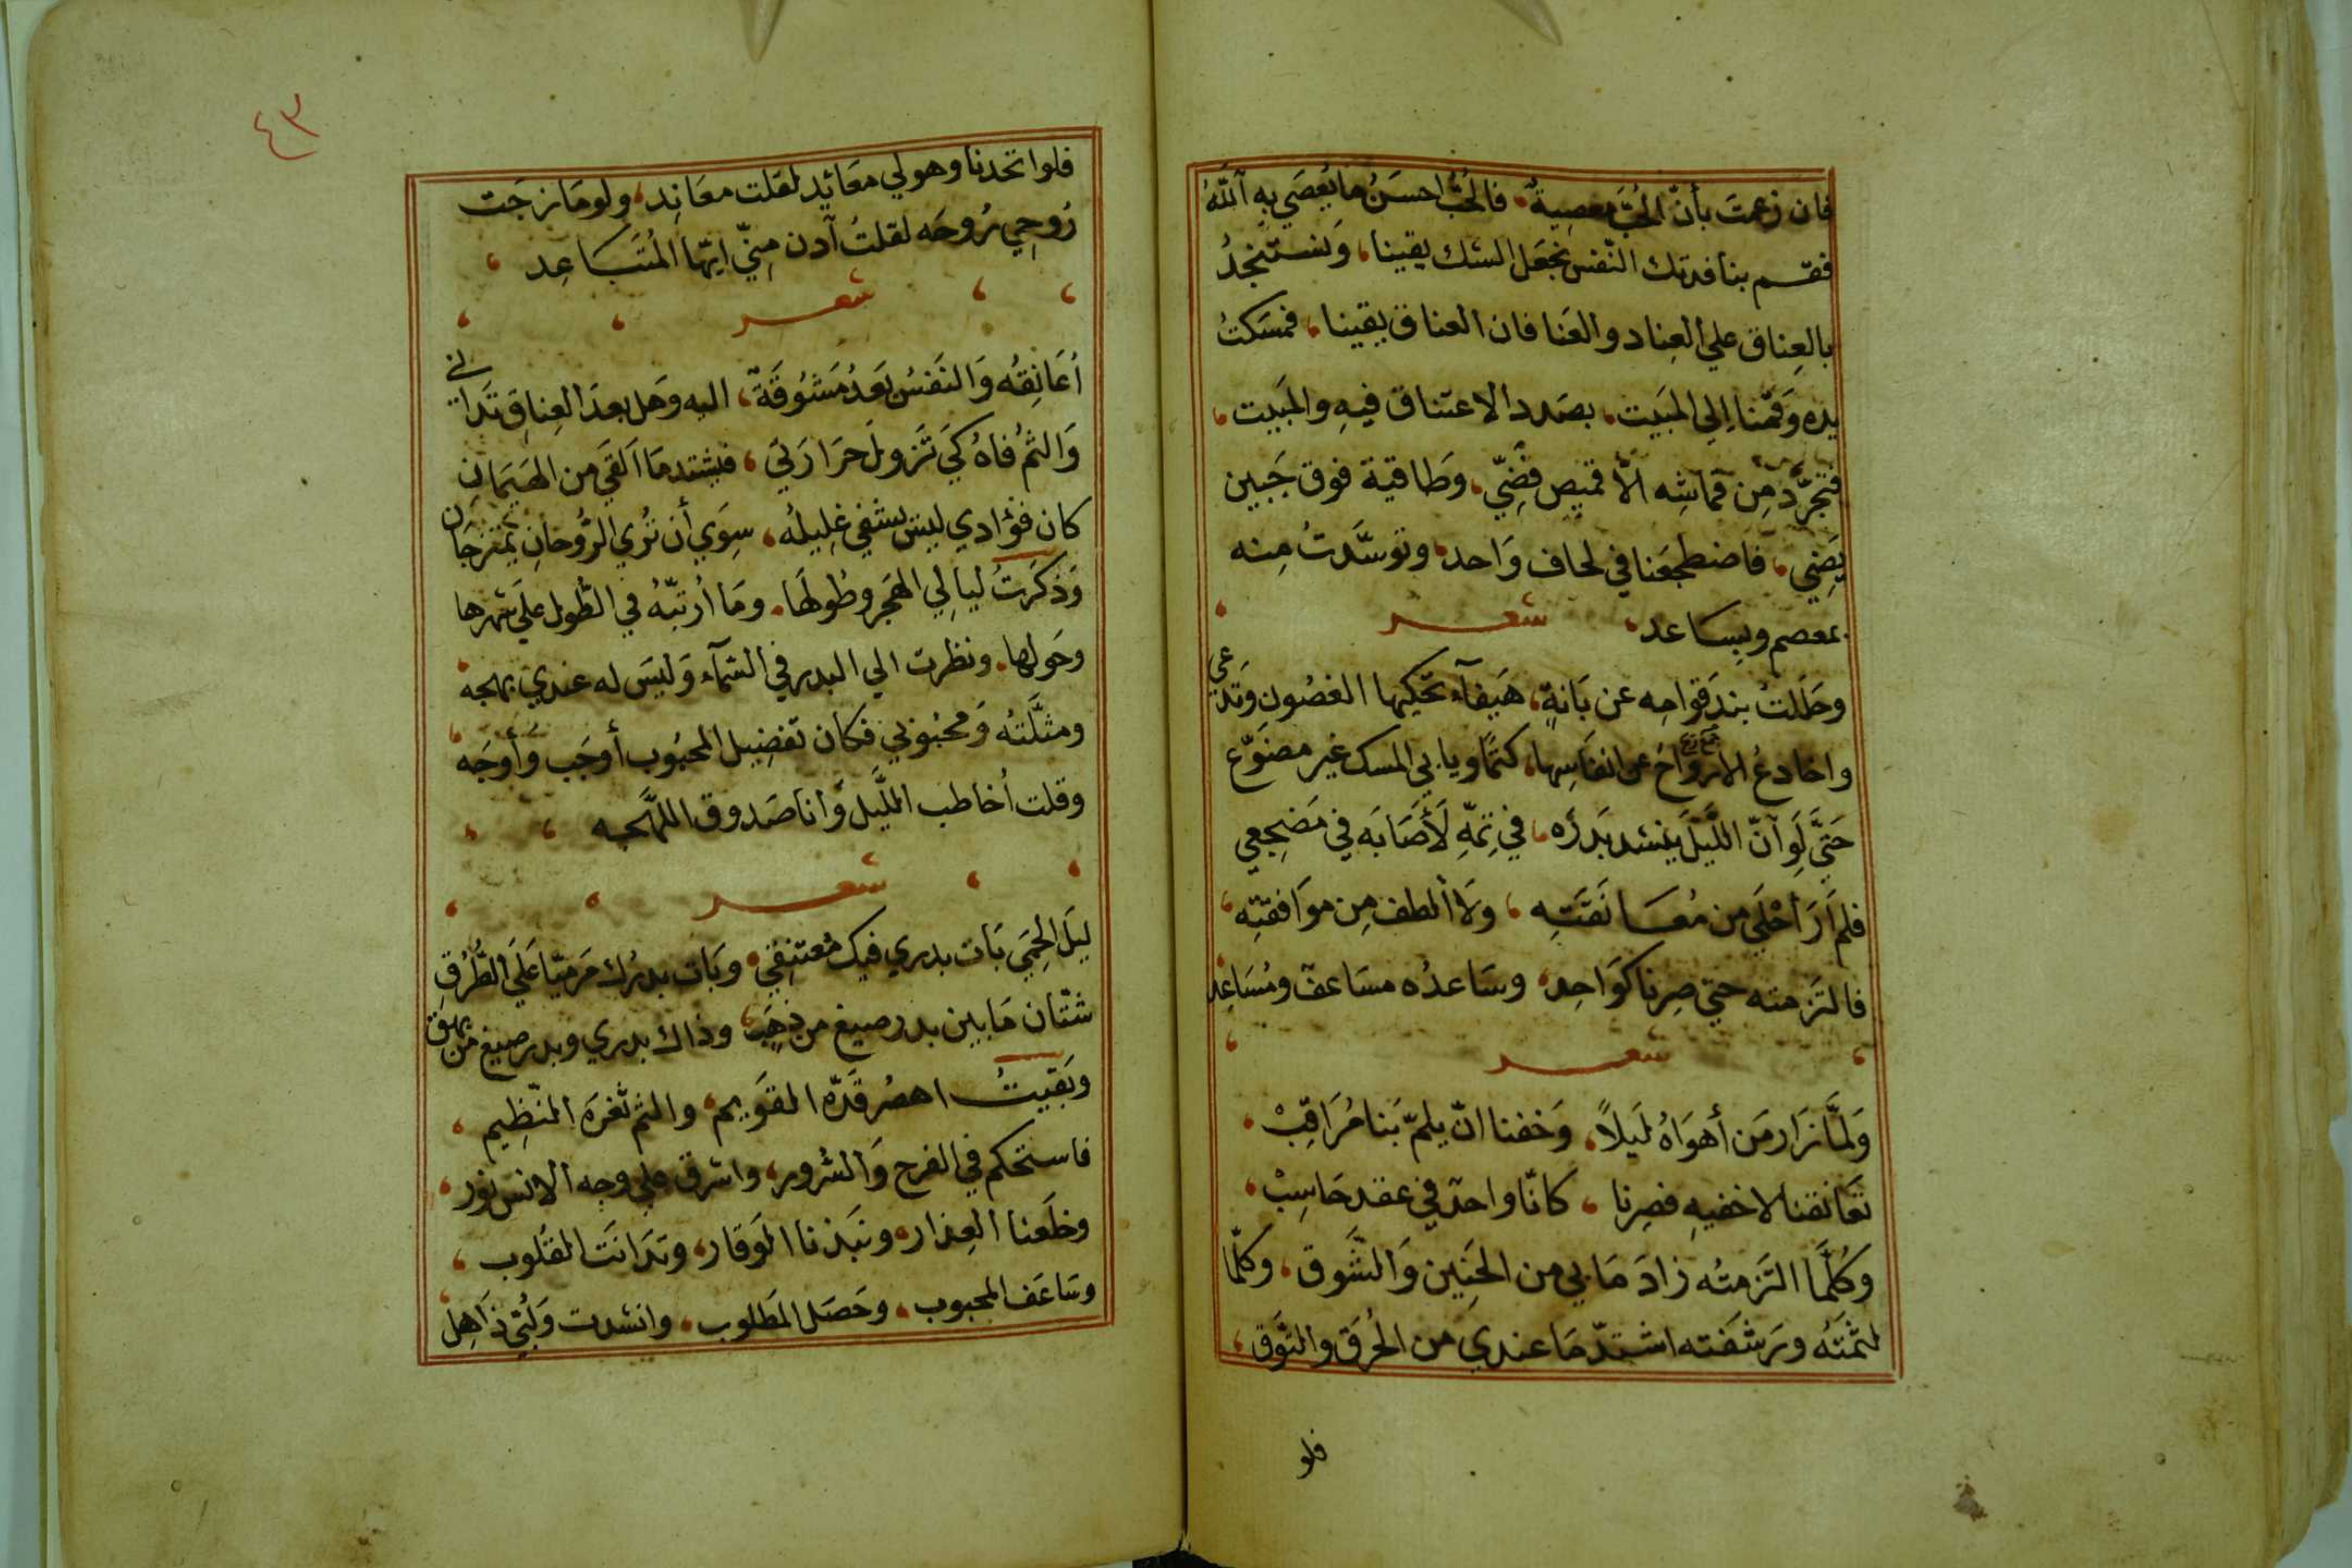 فان زعمتَ بأنّ الحُبَّ معصِيةٌ، فالحُبُّ احسَنُ ما يُعصَي بهِ اللّهُ
فقم بنا فديتك النّفس نجعَل الشك يقينا، وَنستَنجدُ
بالعِناق علي العِناد والعَنا فان العناق يقينا، فمسَكتُ
يده وَقمنا اِلي المَبيت، بصَدد الاعتناق فيهِ والمَبيت،
فتجرَّد مِن قماشِه الاّ قميص فضّيّ، وطَاقية فوق جَبين
يضِي، فاضطجَعَنا في لحاف وَاحد، وتوسَّدتُ مِنه
بمعصم وبِسَاعد، شعر
وحَلَلتُ بندَ قوامِه عن بَانةٍ، هَيفآء تحكيها الغصُون وَتدّعي
واخادعُ الارواحَ عن انفاسِها، كتمًا ويابي المسك غير مضَوّع
حَتيَّ لَو آنّ اللَّيلَ ينشد بَدرَه، في تِمّهِ لَأصَابَه في مَضجعي
فلم اَرَ أحْلَي من مُعَانَقَتِه، وَلا الطف مِن موَافقتِه،
فالتَزمته حتي صِرنا كوَاحِد، وسَاعدُه مسَاعف ومُسَاعِد
شعر
وَلمَّا زَار مَن أهوَاهُ لَيلاً، وَخفنا انّ يلمّ بَنا مُرَاقِبْ،
تعَانقنا لاخفيهِ فصِرنا، كانّا واحدٌ في عقد حَاسِبْ،
وَكُلَّما التَزمتُه زادَ مَا بي من الحَنِين وَالشَّوق، وكلّما
لثمتَهُ وَرشَفته اشتدّ مَا عندي من الحُرَق والتَّوق،
فلو
٤٣
فلوا تحدنا وهو لي معَانِد لقلت معَانِد، ولو مَازجَت
رُوحِي رُوحَه لقلتُ آدن مِنّي ايّها المُتَبَاعِد،
شعر
أعَانِقُه وَالنَفسُ بَعدُ مَشوُقَةٌ، اليه وَهل بعدَ العِناقِ تَدانى
وَالثمُ فاهُ كَي تَزولَ حَرَارَتي، فيشتد مَا القَي من الهَيَمَانِ
كان فؤادي ليسَ يشفي غِليلهُ، سِوَي أن تُري الرُّوحانِ يمتَزجَان
وَذكَرتُ ليالِي الهَجر وطُولهَا، ومَا أرتبّهُ في الطُّول علي شهرها
وحَولها، ونظرت الي البدر في السّمآء وَليسَ له عندي بهجه،
ومثَّلتُه وَمحبُوبي فكان تفضِيل المحبُوب أوجَب وأوجَه،
وقلت أخاطب اللَّيل وَأنا صَدوق اللَّهجه،
شعر
ليَلَ الحِمَي بَات بدري فيك معتنِقي، وبَات بدرُك مَرميّا عَلَي الطُرُقِ
شتّان مَا بين بدر صيغ من ذهَبٍ، وذاك بدري وبدر صيغ من بهق
وبَقيتُ اهصُر قَدّه القوَيم، والثم ثغرَه النّظِيم،
فاستحكم في الفرح وَالسُّرور، واشرق علي وجه الانس نور،
وخلَعنا العِذار، ونبَذنا الوَقار، وتدَانتَ القلُوب،
وسَاعَف المحبوب، وحَصَل المَطلوب، وانشدت وَلُبّي ذَاهِل